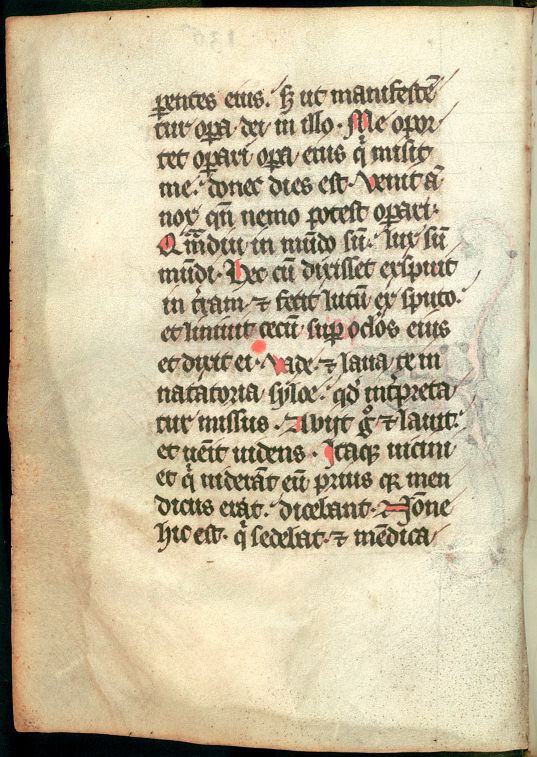 ꝑentes eius. Ꜩ ut manifestē
tur oꝑa dei in illo. Me opor
tet oꝑari oꝑa eius qͥ misit
me. donec dies est. Venit aͫ
nox qn̄ nemo potest oꝑari.
Qͣmdiu in mūdo sū. lux sū
mūdi. Hec cū dixisset expuit
in tͥram ⁊ fecit lutū ex sputo.
et liniuit lutū suꝑ oclōs eius
et dixit ei. Vade. ⁊ laua te in
natatoria syloe. qd̓ int̓preta
tur missus. Abijt gͦ ⁊ lauit.
et uēit uidens. Itaqꝫ uicini
et qͥ uiderāt eū prius qꝛ men
dicus erat. dicebant. Nōne
hic est. qͥ sedebat. ⁊ mēdica